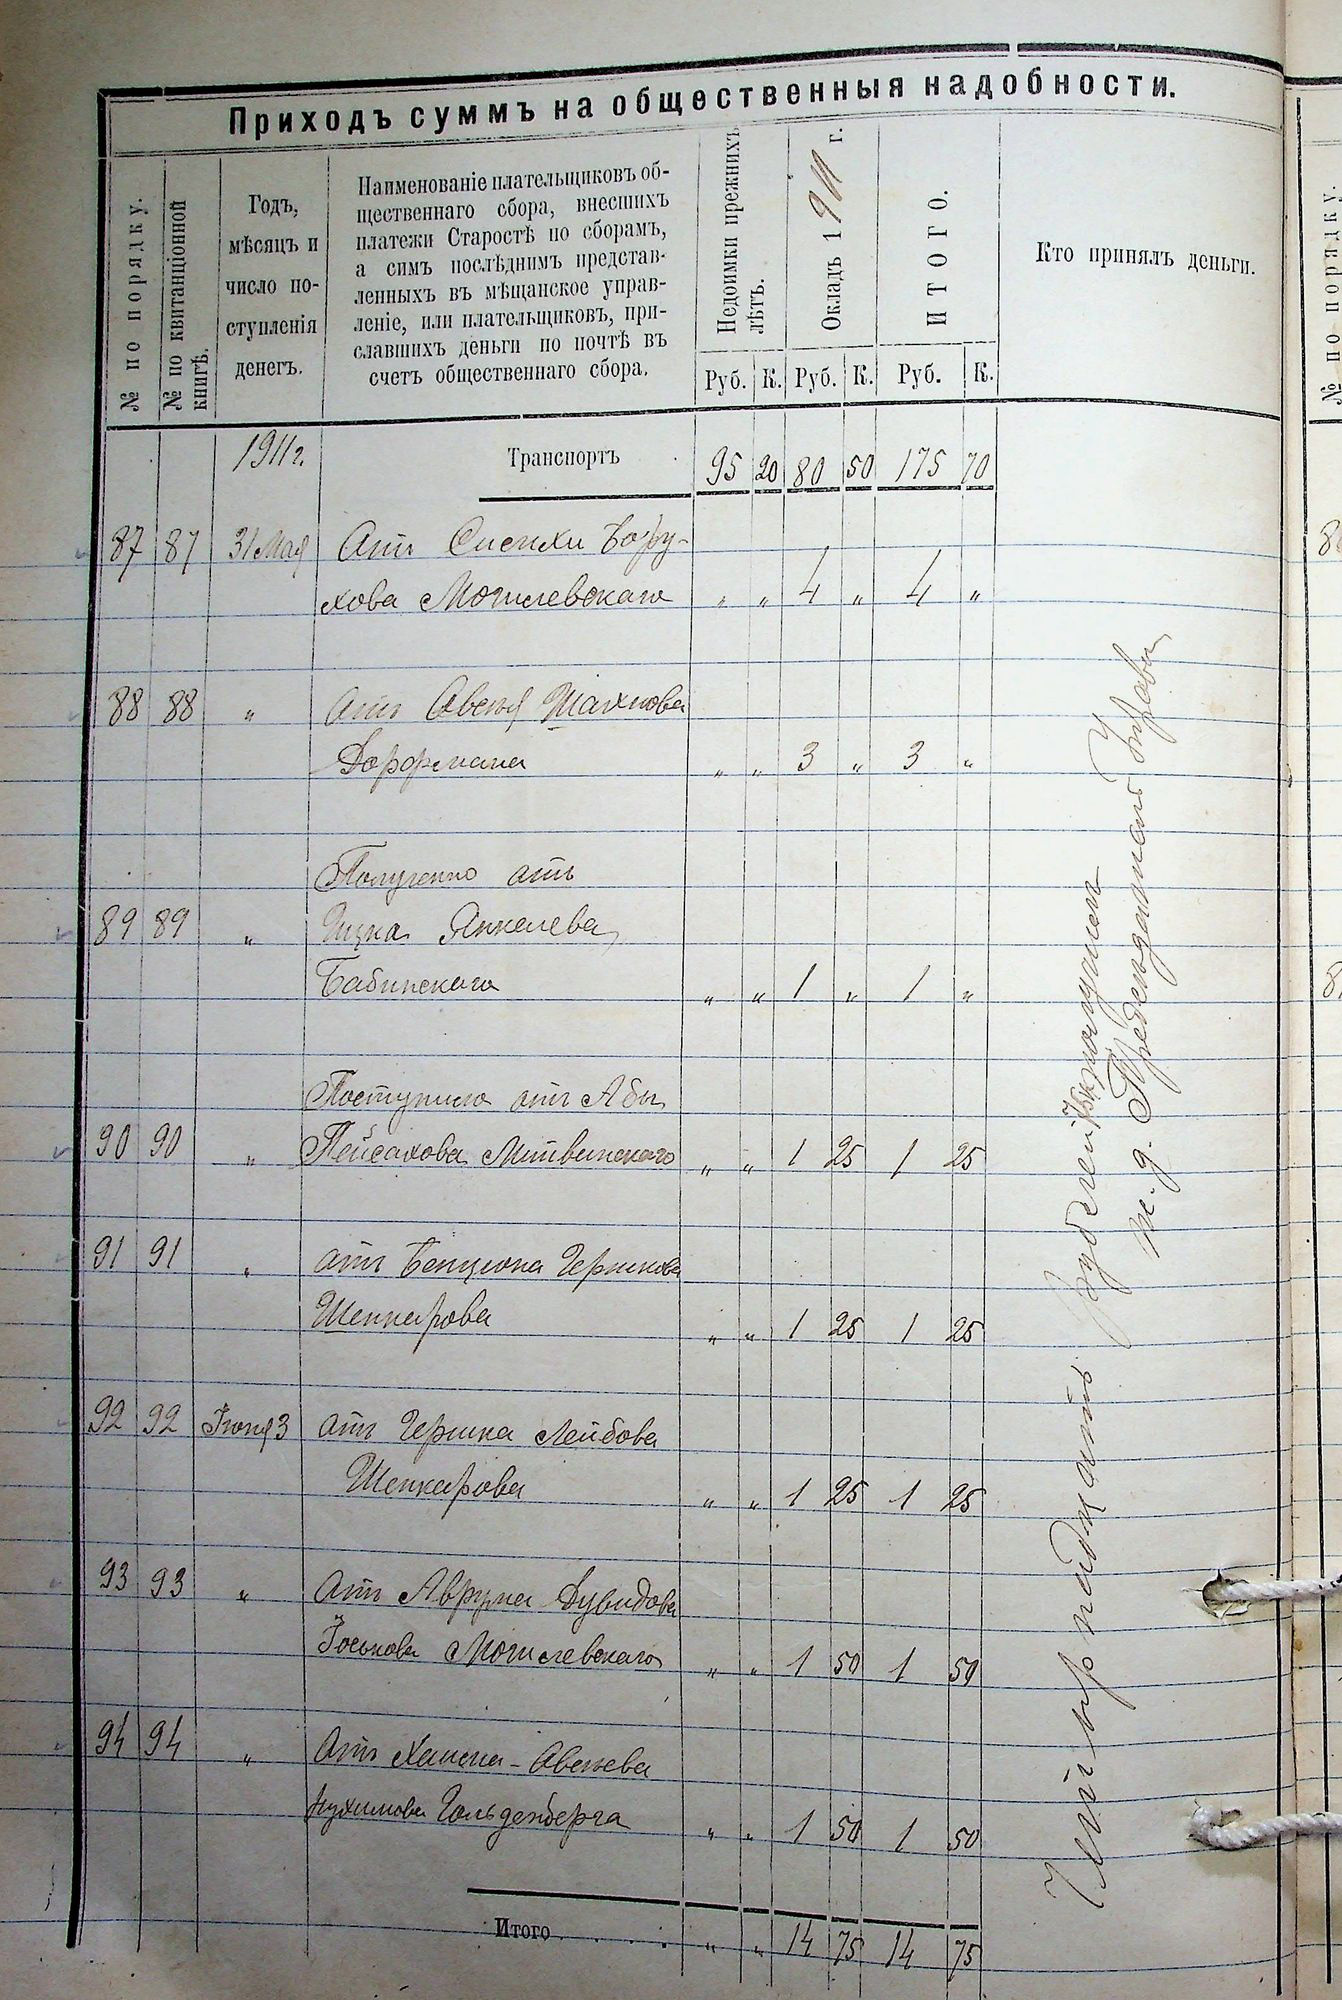 Приходъ суммъ на общественныя надобности.
№ по порядку.
№ по квитанціонной
книгѣ.
Годъ,
мѣсяцъ и
число по-
ступленія
денегъ.
Наименованіе плательщиковъ об-
щественнаго сбора, внесшихъ
платежи Старостѣ по сборамъ,
а симъ послѣднимъ представ-
ленныхъ въ мѣщанское управ-
леніе, или плательщиковъ, при-
славшихъ деньги по почтѣ въ
счетъ общественнаго сбора.
Недоимки прежнихъ
лѣтъ.
Окладъ 1911 г.
ИТОГО.
Кто принялъ деньги.
Руб. К. Руб. К. Руб. К.
1911 г. Транспортъ 95 20 80 50 175 70
87 87 31 Мая Отъ Бору-
хова Могилевскаго " " 4 " 4 "
88 88 " отъ Овсея Шахнова
Дорфмана " " 3 " 3 "
Полученно отъ
89 89 " Ицка Янкелева
Бабинскаго " " 1 " 1 "
Поступило отъ Абы
90 90 " Пейсахова Литвинскаго " " 1 25 1 25
91 91 " отъ Бенціона Гершкова
Шенкарова " " 1 25 1 25
92 92 Іюня 3 отъ Гершка Лейбова
Шенкарова " " 1 25 1 25
93 93 " Отъ Аврума Дувидова
Іоськова Могилевскаго " " 1 50 1 50
94 94 " Отъ Хаима-Овсеева
Нухимова Гольденберга " " 1 50 1 50
Итого " " 14 75 14 75
Четырнадцать рублей 75к получилъ
Предсѣдатель Управы
№ по порядку.